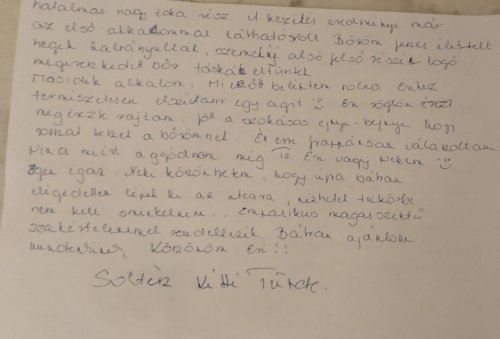 hatalmas nagy toka rész. A kezelés eredménye már
az első alkalommal látható volt. Bőröm feszes élettelt
hegek halványultak, szemhéj alsó felső részek logó
megereszkedett bőr táskák eltűntek
Második alkalom: Mielőtt beléptem volna ehhez
természetesen elszívtam egy cigit Ő rögtön ezt
megérezte rajtam. Jött a szokásos ejnye-bejnye hogy
rosszat teszek a bőrömnek. Én erre frappánsan válaszoltam.
Nincs miért aggódnom míg Te Én vagy nekem
Igen igaz. Neki köszönhetem, hogy újra bátran
elégedetten lépek ki az utcára, nézhetek tükörbe
nem kell sminkelnem. Empatikus magas szintű
szakértelemmel rendelkezik. Bátran ajánlom
mindenkinek Köszönöm Évi!!
Soltész Kitti Tünde.